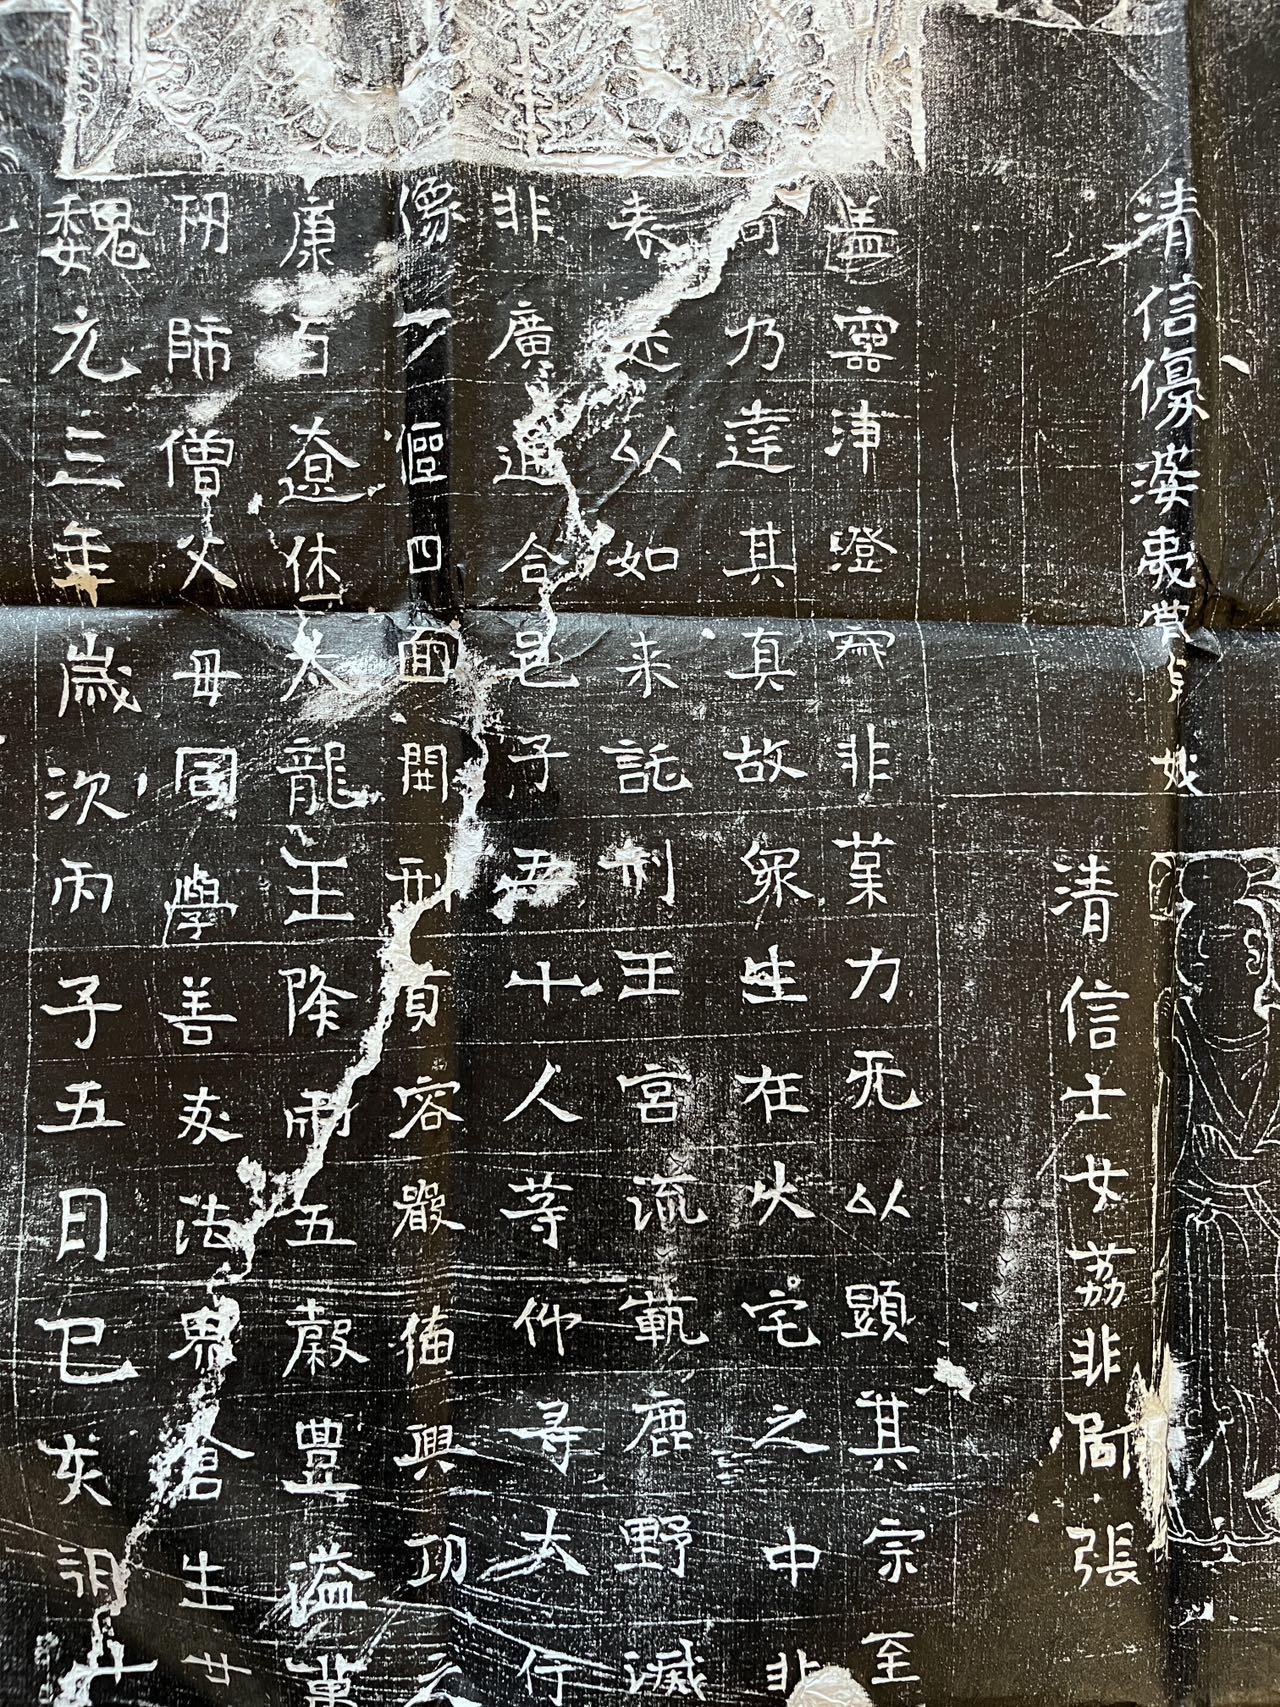 清信優婆夷
清信士女荔非局張
盖靈津澄寂非菓力无以顯其宗至
乃達其真故衆生在火宅之中非
表述以如来託刑王宫流範鹿野滅
非廣通合邑子五十人等仰尋大行
像一區四面開刑真容嚴俻興功
康百遼休太龍王降雨五穀豊溢萬
師僧父母同學善友法界倉生廿
魏元三年歲次丙子五月己亥朔廿